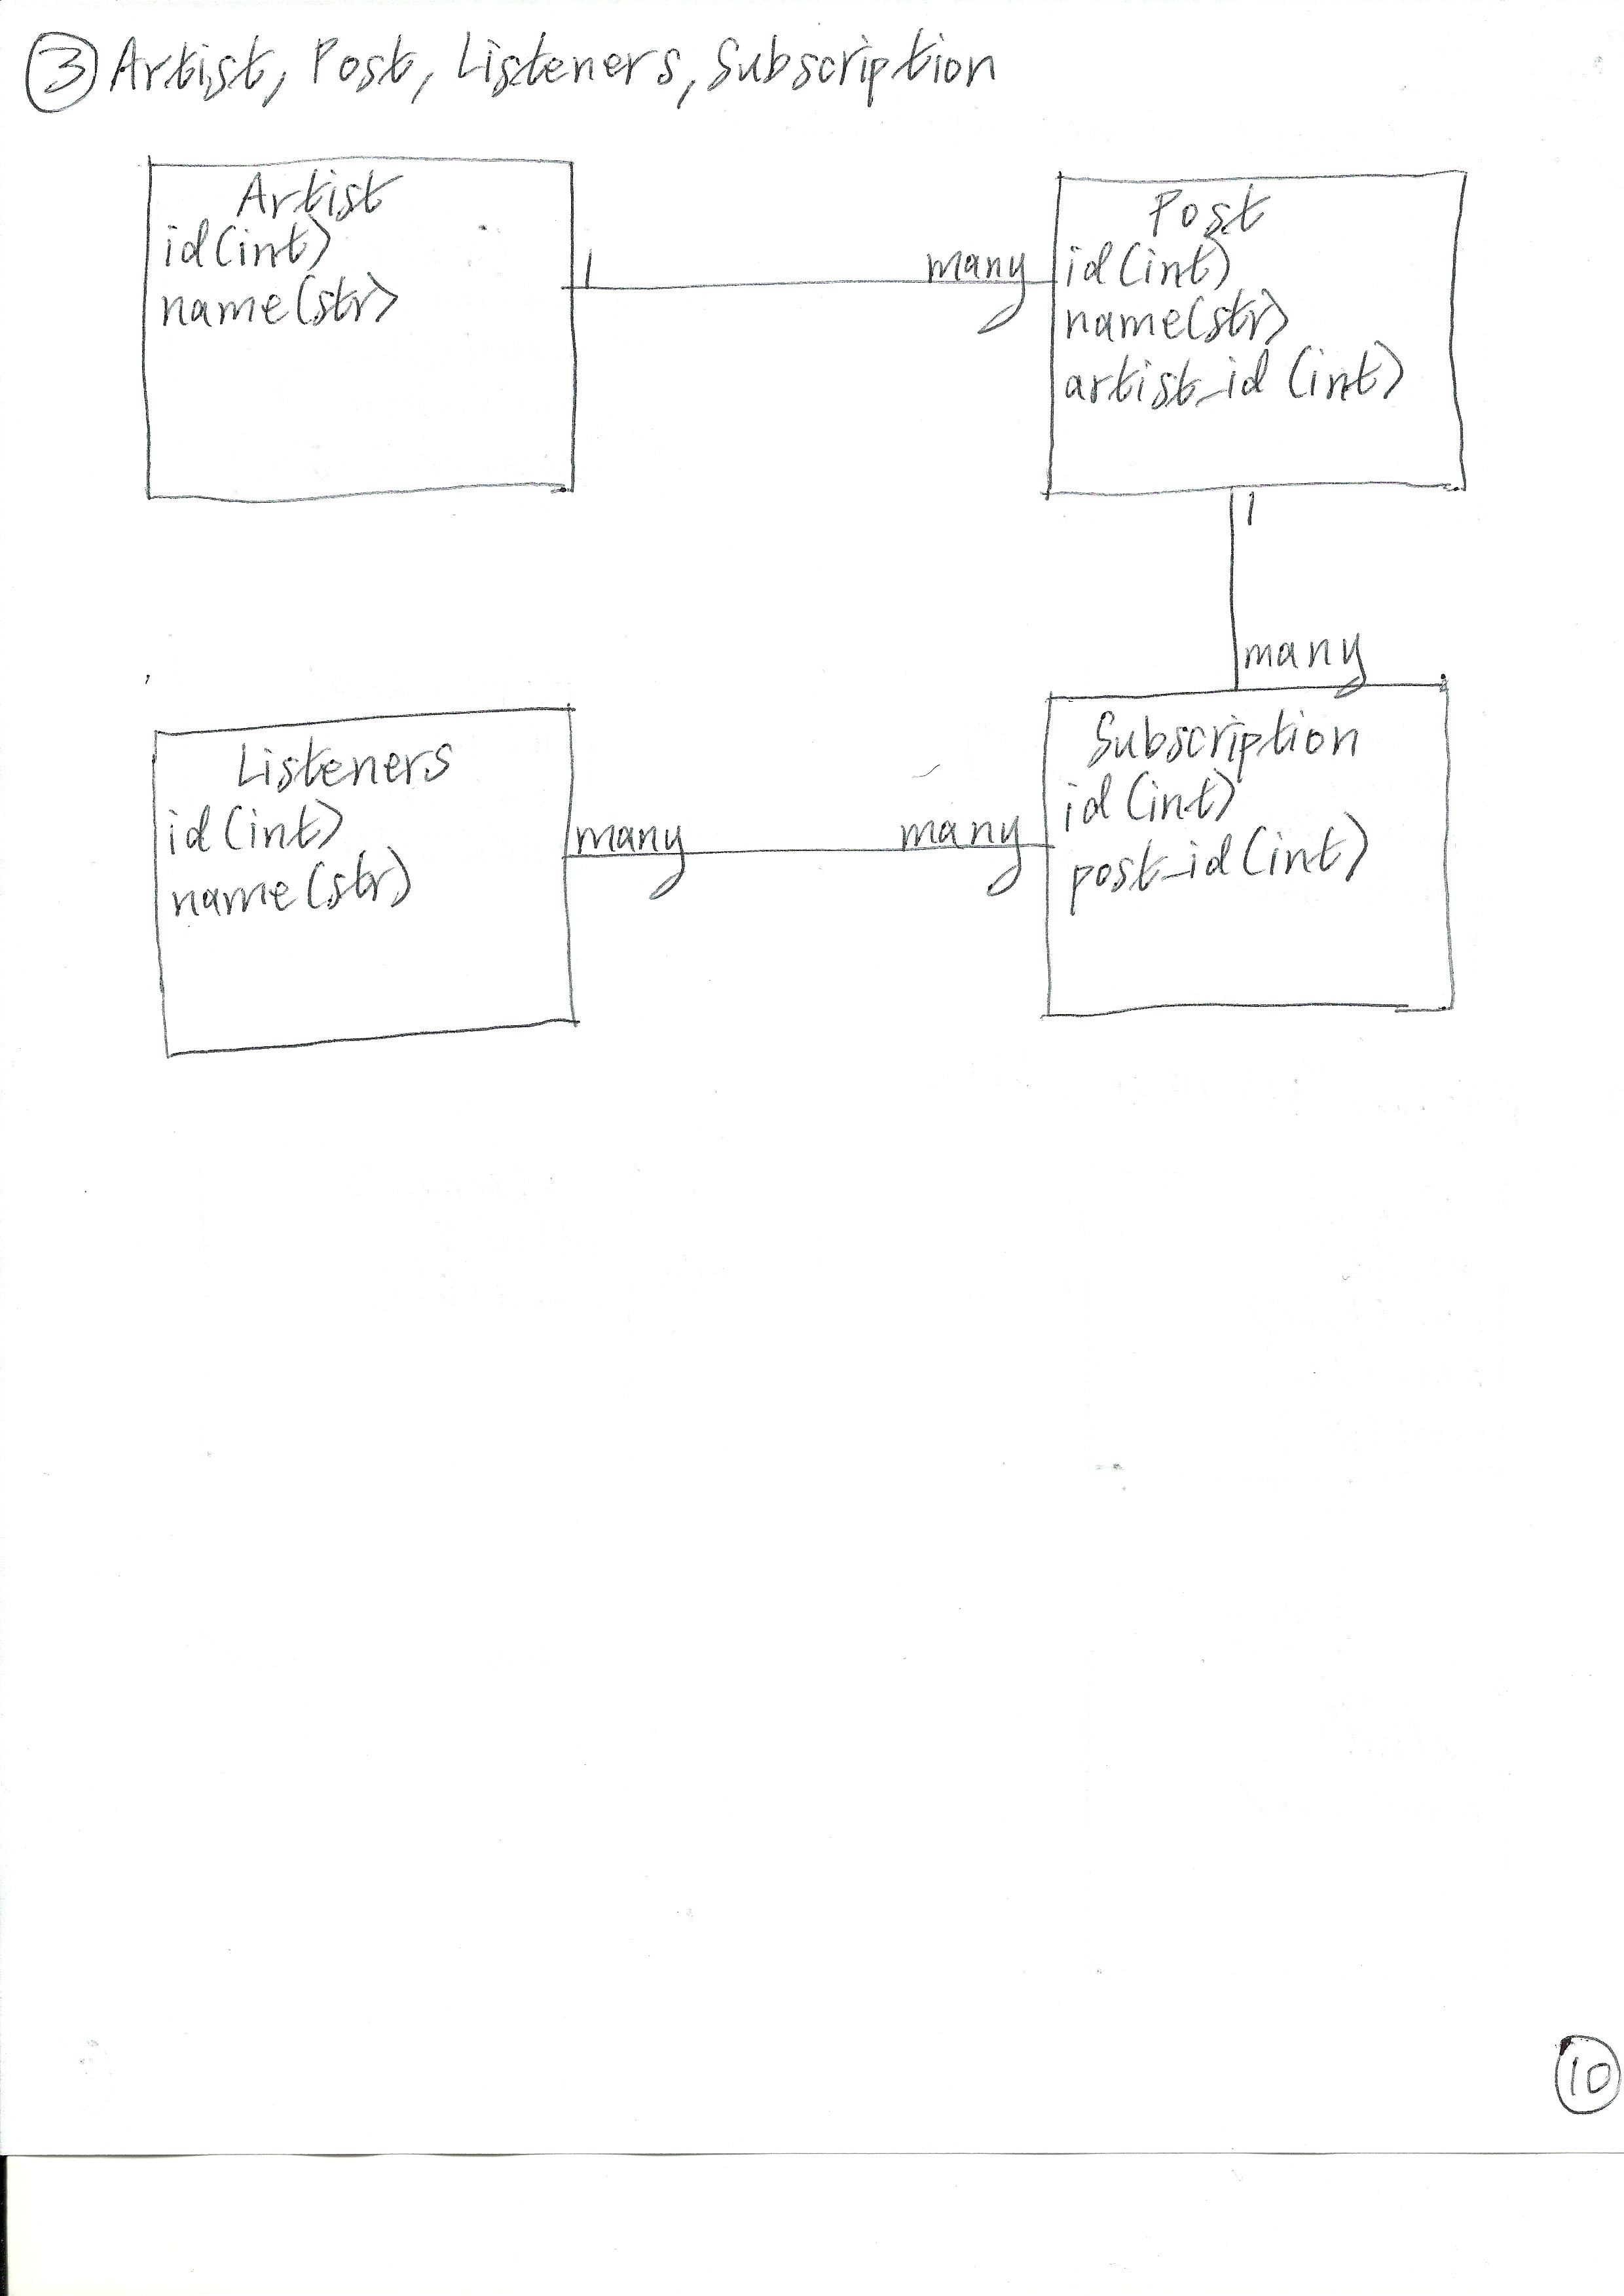 ③ Artist, Post, Listeners, Subscription
Artist
id (int)
name (str)
1
many
Post
id (int)
name (str)
artist_id (int)
1
many
Listeners
id (int)
name (str)
many
many
Subscription
id (int)
post_id (int)
⑩